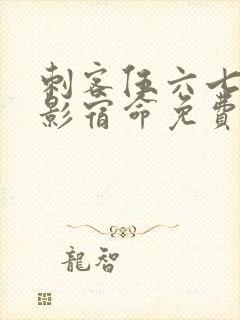 刺客伍六七
影宿命免费
龍智